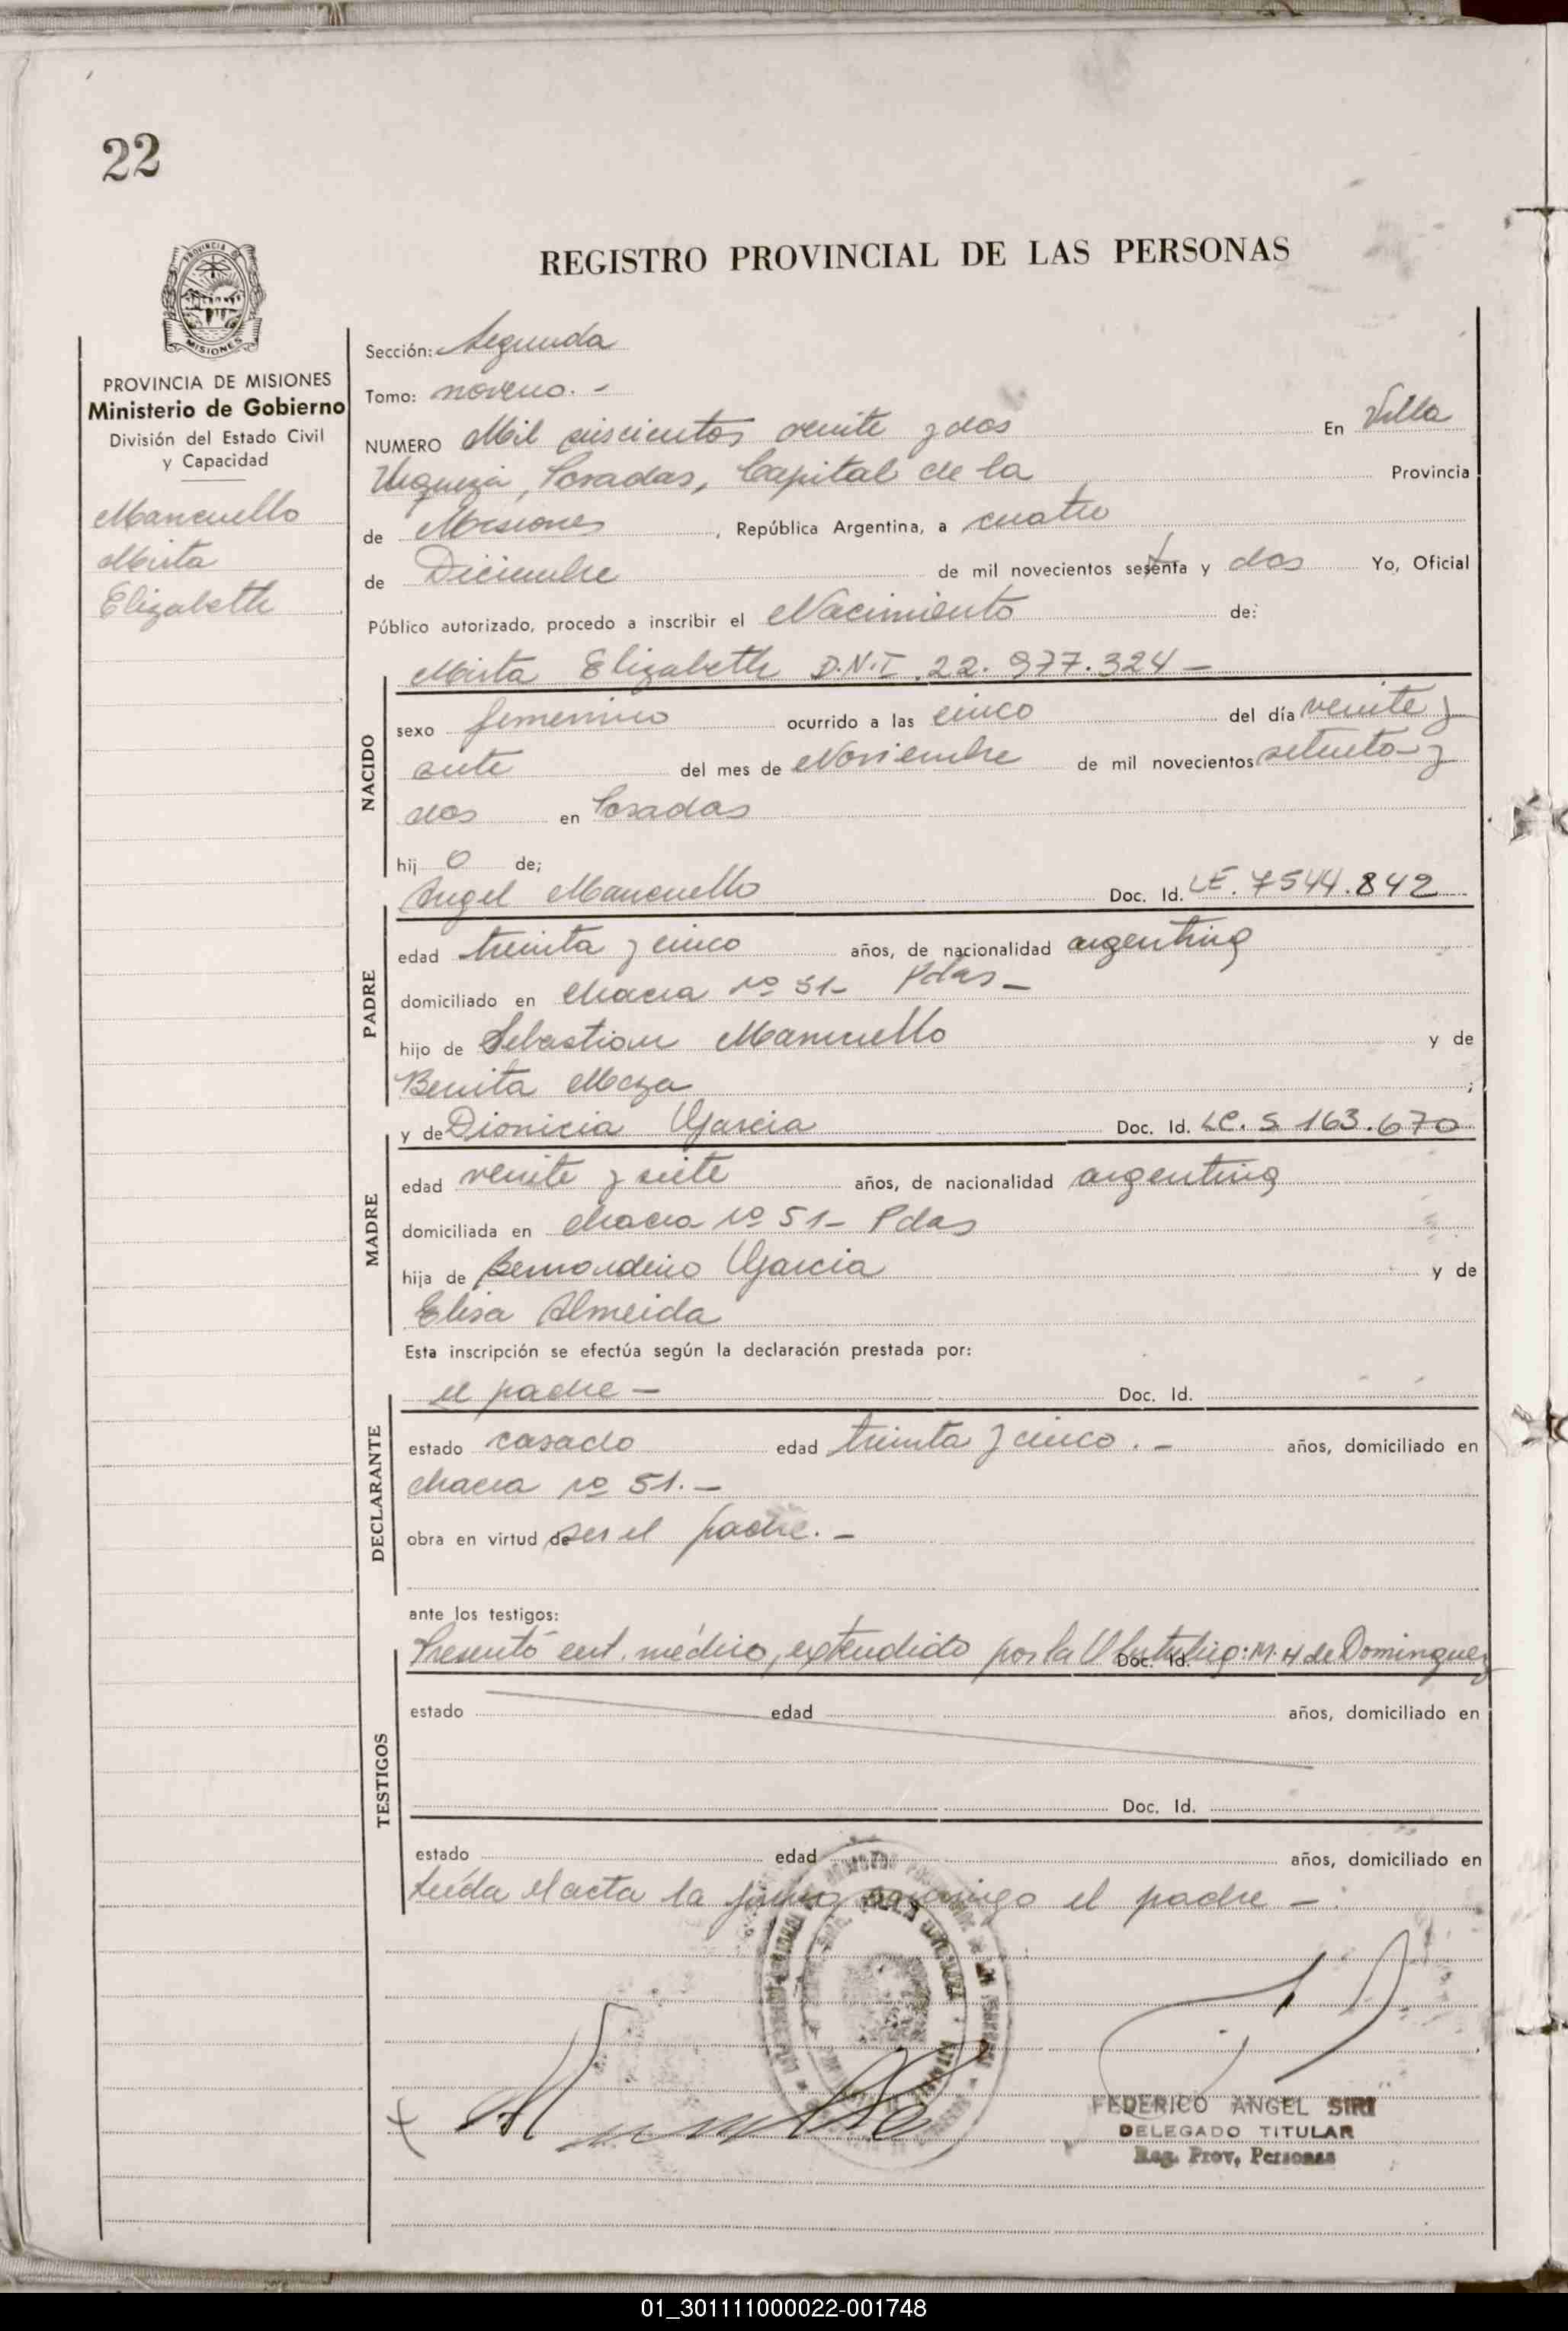 22
REGISTRO PROVINCIAL DE LAS PERSONAS
MISIONES
PROVINCIA DE MISIONES
Ministerio de Gobierno
División del Estado Civil
y Capacidad
Mancuello
Mirta
Elizabeth
Sección: Segunda
Tomo: noveno. -
NUMERO Mil seiscientos veinte y dos En Villa
Urquiza, Posadas, Capital de la Provincia
de Misiones, República Argentina, a cuatro
de Diciembre de mil novecientos setenta y dos Yo, Oficial
Público autorizado, procedo a inscribir el Nacimiento de:
Mirta Elizabeth D.N.I. 22.977.324 -
NACIDO
sexo femenino ocurrido a las cinco del día veinte y
siete del mes de Noviembre de mil novecientos setenta y
dos en Posadas
hij o de;
Angel Mancuello Doc. Id. LE. 7544.842
PADRE
edad treinta y cinco años, de nacionalidad argentina
domiciliado en chacra nº 51- Pdas -
hijo de Sebastian Mancuello y de
Benita Meza ;
y de Dionicia Garcia Doc. Id. LC. 5 163.670
MADRE
edad veinte y siete años, de nacionalidad argentina
domiciliada en chacra nº 51- Pdas
hija de Bernardino Garcia y de
Elisa Almeida
Esta inscripción se efectúa según la declaración prestada por:
el padre - Doc. Id.
DECLARANTE
estado casado edad treinta y cinco. - años, domiciliado en
chacra nº 51. -
obra en virtud de ser el padre. -
ante los testigos:
Presentó cert. médico, extendido por la Doc. Id. M. H de Dominguez
TESTIGOS
estado edad años, domiciliado en
Doc. Id.
estado edad años, domiciliado en
Leída el acta la firma conmigo el padre -
FEDERICO ANGEL SIRI
DELEGADO TITULAR
Reg. Prov. Personas
01_301111000022-001748